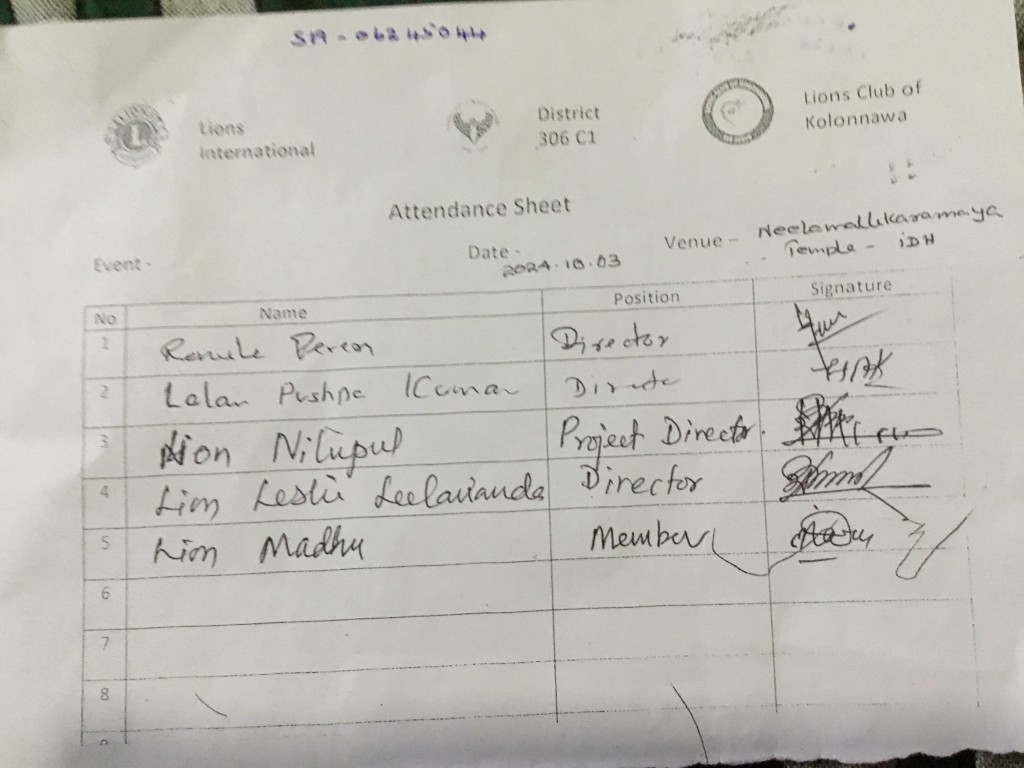 SA - 06245044
Lions
International
District
306 C1
Lions Club of
Kolonnawa
Attendance Sheet
Event -
Date -
2024.10.03
Venue - Neelamallikaramaya
Temple - IDH
No Name Position Signature
1 Director
2 Lalan Pushpa Kumar Directo
3 Lion Nilupul Project Director.
4 Lion Leslie Leelavianda Director
5 Lion Madhu Member
6
7
8